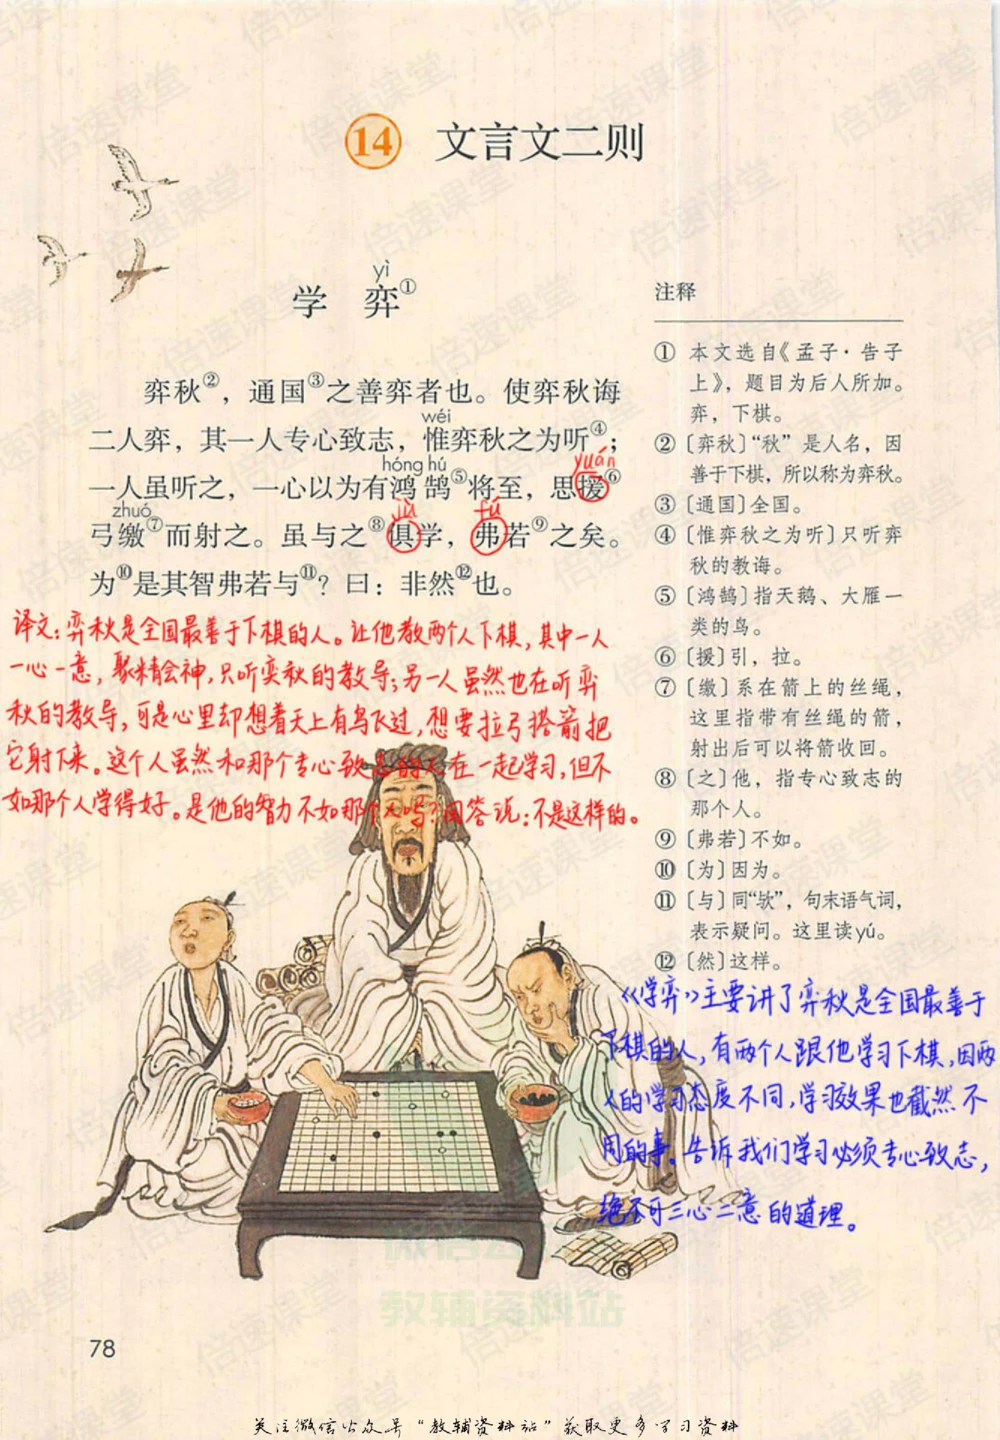 14 文言文二则
yì
学 弈①
弈秋②，通国③之善弈者也。使弈秋诲
wéi
二人弈，其一人专心致志，惟弈秋之为听④；
hóng hú
yuán
一人虽听之，一心以为有鸿鹄⑤将至，思援⑥
zhuó
jù
fú
弓缴⑦而射之。虽与之⑧俱学，弗若⑨之矣。
为⑩是其智弗若与⑪？曰：非然⑫也。
注释
① 本文选自《孟子·告子
上》，题目为后人所加。
弈，下棋。
② 〔弈秋〕“秋”是人名，因
善于下棋，所以称为弈秋。
③ 〔通国〕全国。
④ 〔惟弈秋之为听〕只听弈
秋的教诲。
⑤ 〔鸿鹄〕指天鹅、大雁一
类的鸟。
⑥ 〔援〕引，拉。
⑦ 〔缴〕系在箭上的丝绳，
这里指带有丝绳的箭，
射出后可以将箭收回。
⑧ 〔之〕他，指专心致志的
那个人。
⑨ 〔弗若〕不如。
⑩ 〔为〕因为。
⑪ 〔与〕同“欤”，句末语气词，
表示疑问。这里读yú。
⑫ 〔然〕这样。
译文：弈秋是全国最善于下棋的人。让他教两个人下棋，其中一人
一心一意，聚精会神，只听弈秋的教导；另一人虽然也在听弈
秋的教导，可是心里却想着天上有鸟飞过，想要拉弓搭箭把
它射下来。这个人虽然和那个专心致志的人在一起学习，但不
如那个人学得好。是他的智力不如那个人吗？回答说：不是这样的。
《学弈》主要讲了弈秋是全国最善于
下棋的人，有两个人跟他学习下棋，因两
人的学习态度不同，学习效果也截然不
同的事。告诉我们学习必须专心致志，
绝不可三心二意的道理。
78
倍速课堂
微信公
教辅资料站
关注微信公众号“教辅资料站”获取更多学习资料